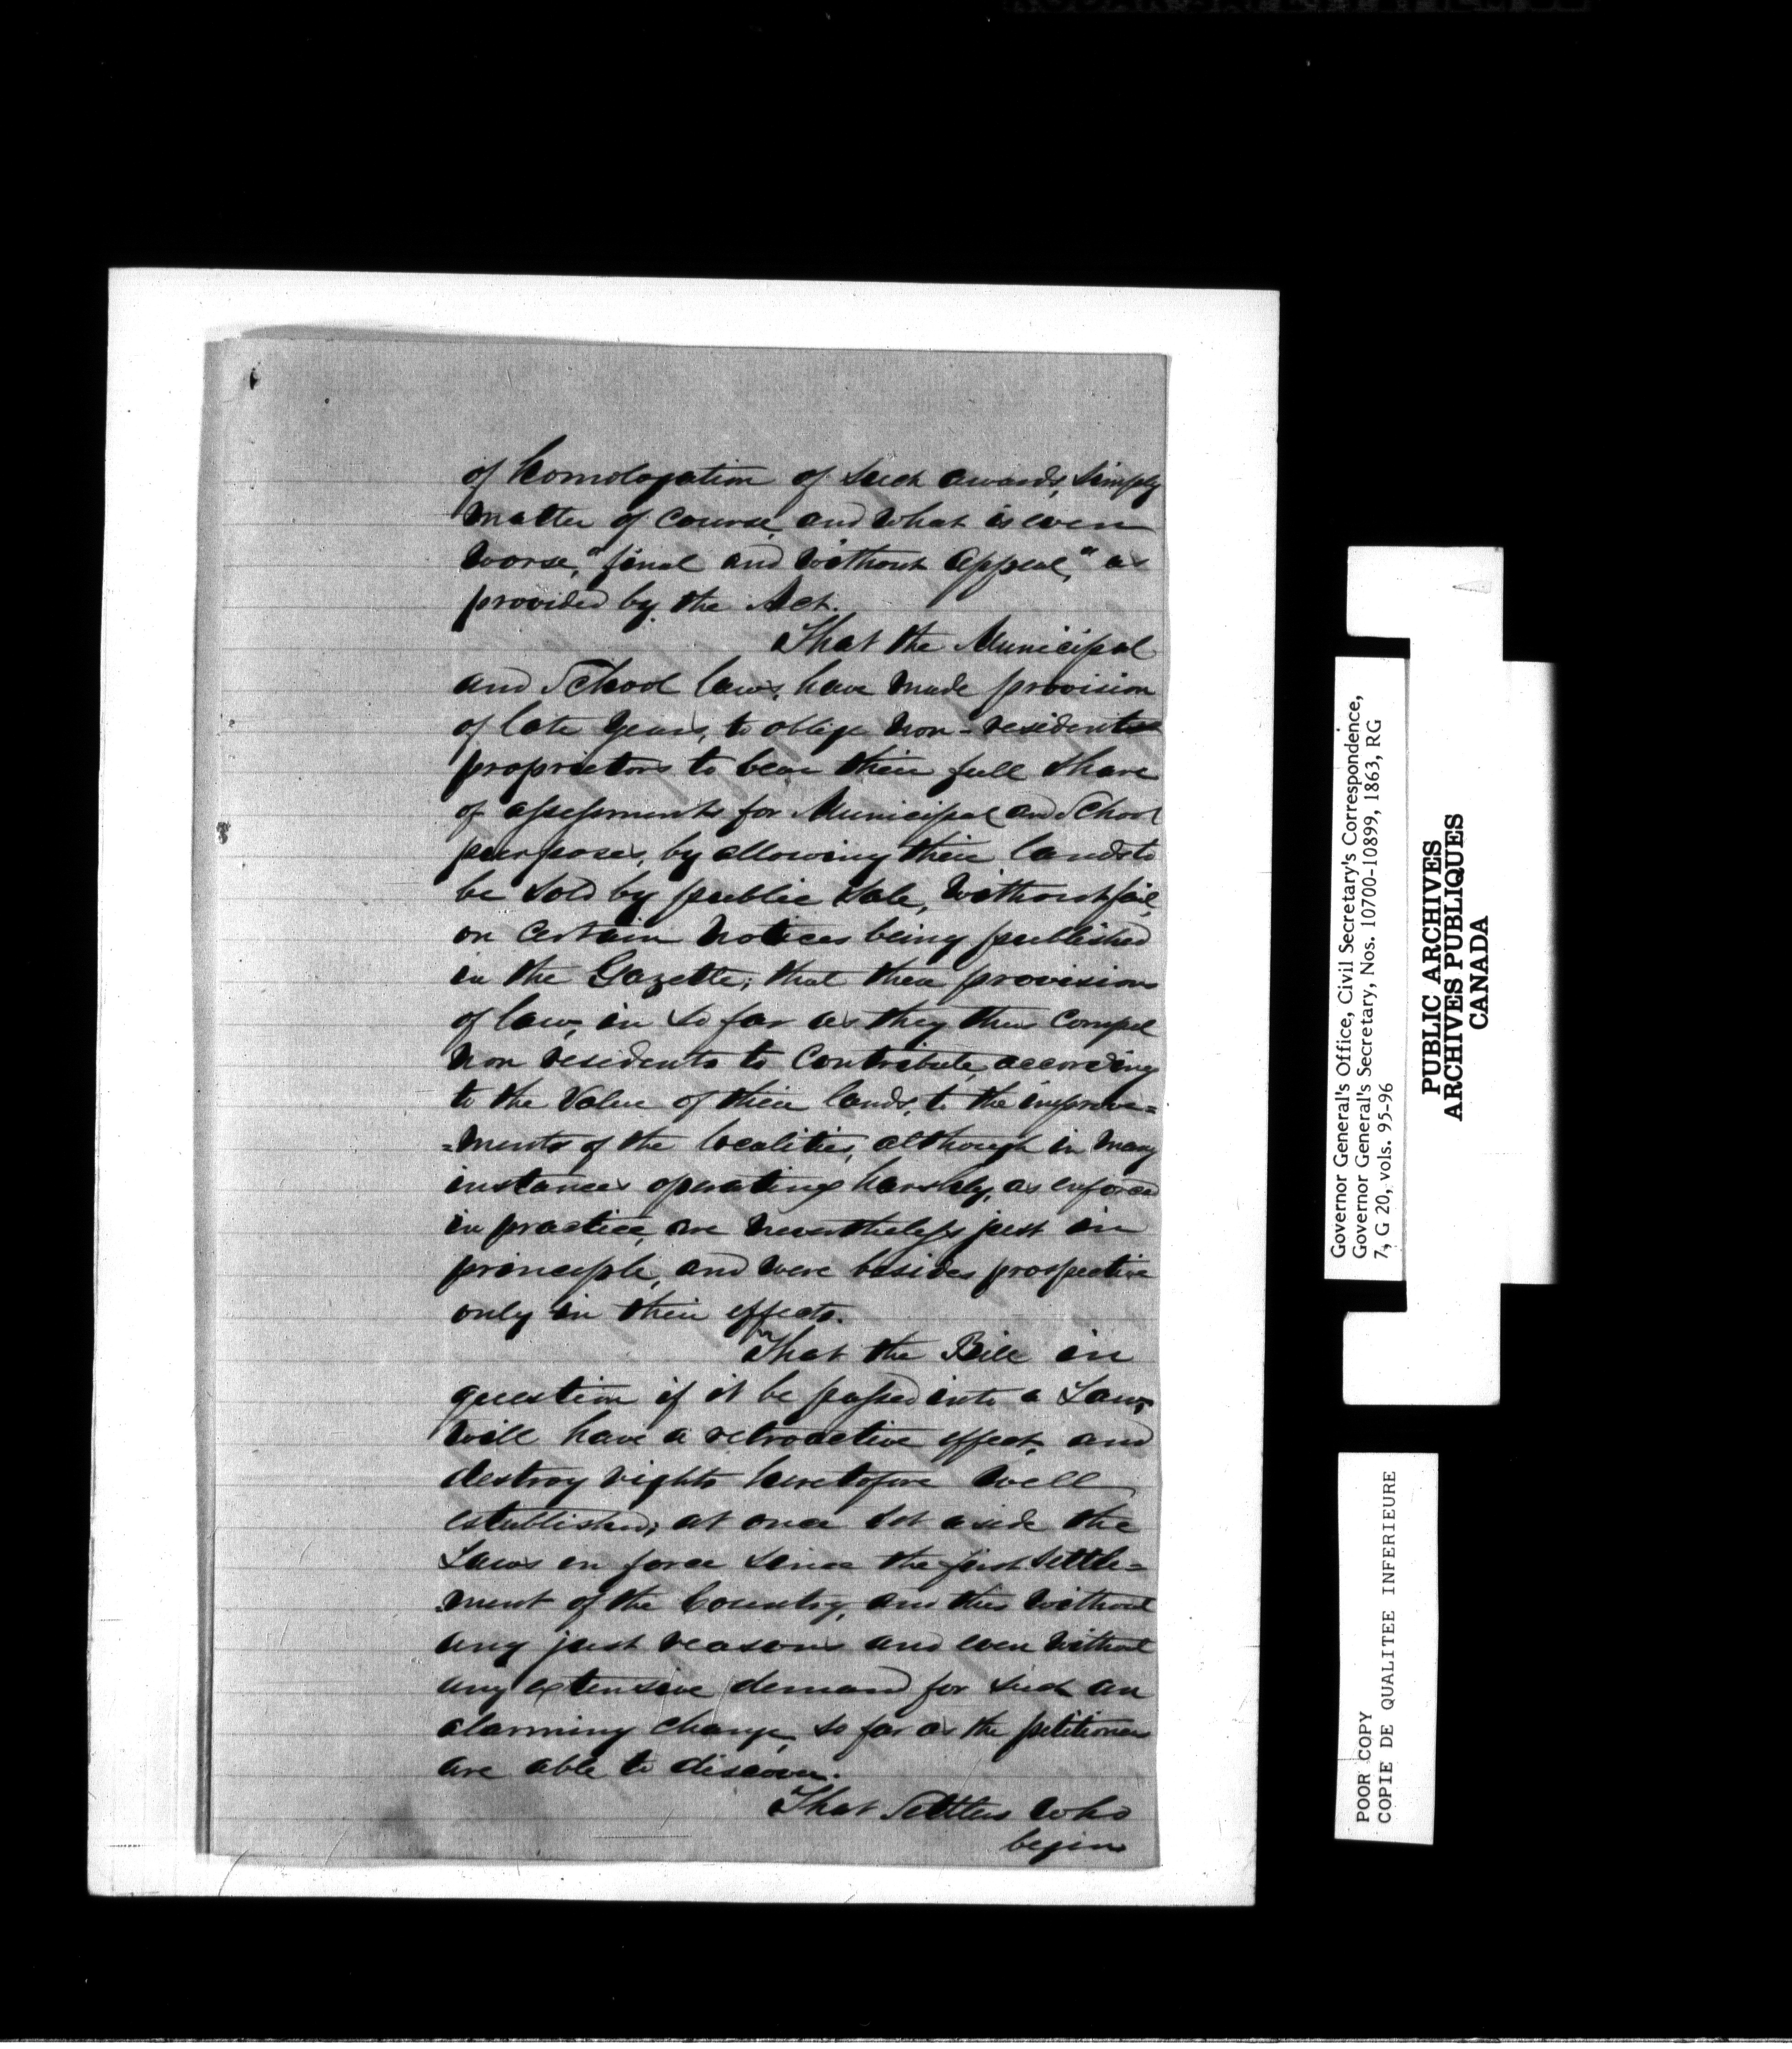 of homologation of such awards, simply
matter of course, and what is even
worse, "final and without appeal," as
provided by the Act.
That the Municipal
and School laws, have made provision
of late years, to oblige non-resident
proprietors to bear their full share
of assessments for Municipal and School
purposes, by allowing their lands to
be sold by public sale, without fail,
on certain notices being published
in the Gazette; that these provisions
of law, in so far as they thus compel
non residents to contribute, according
to the value of their lands, to the improve=
=ments of the localities, although in many
instances operating harshly, as enforced
in practice, are nevertheless just in
principle, and were besides prospective
only in their effects.
That the Bill in
question if it be passed into a Law,
will have a retroactive effect, and
destroy rights heretofore well
established; at once set aside the
Laws in force since the first settle=
ment of the Country, and this without
any just reasons and even without
any extensive demand for such an
alarming change, so far as the petitioners
are able to discover.
That Settlers who
begin
Governor General's Office, Civil Secretary's Correspondence,
Governor General's Secretary, Nos. 10700-10899, 1863, RG
7, G 20, vols. 95-96
PUBLIC ARCHIVES
ARCHIVES PUBLIQUES
CANADA
POOR COPY
COPIE DE QUALITEE INFERIEURE